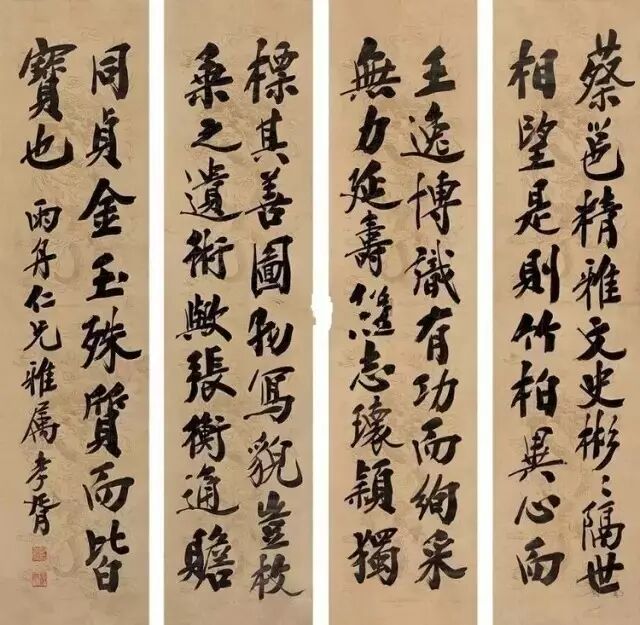 蔡邕精雅文史彬〻隔世
相望是則竹柏異心而
王逸博識有功而絢采
無力延壽繼志瓌穎獨
標其善圖物寫貌豈枚
乘之遺術歟張衡通贍
同貞金玉殊質而皆
寶也 雨丹仁兄雅屬 孝胥